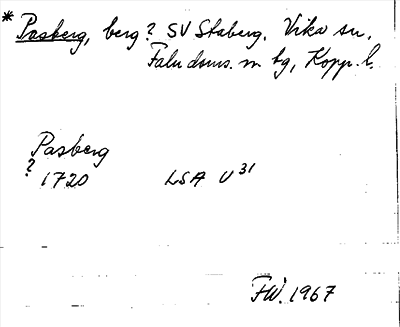 * Pasberg, berg? SV Staberg. Vika sn,
Falu doms. m tg, Kopp. l.
Pasberg
? 1720 LSA U 31
FW. 1967